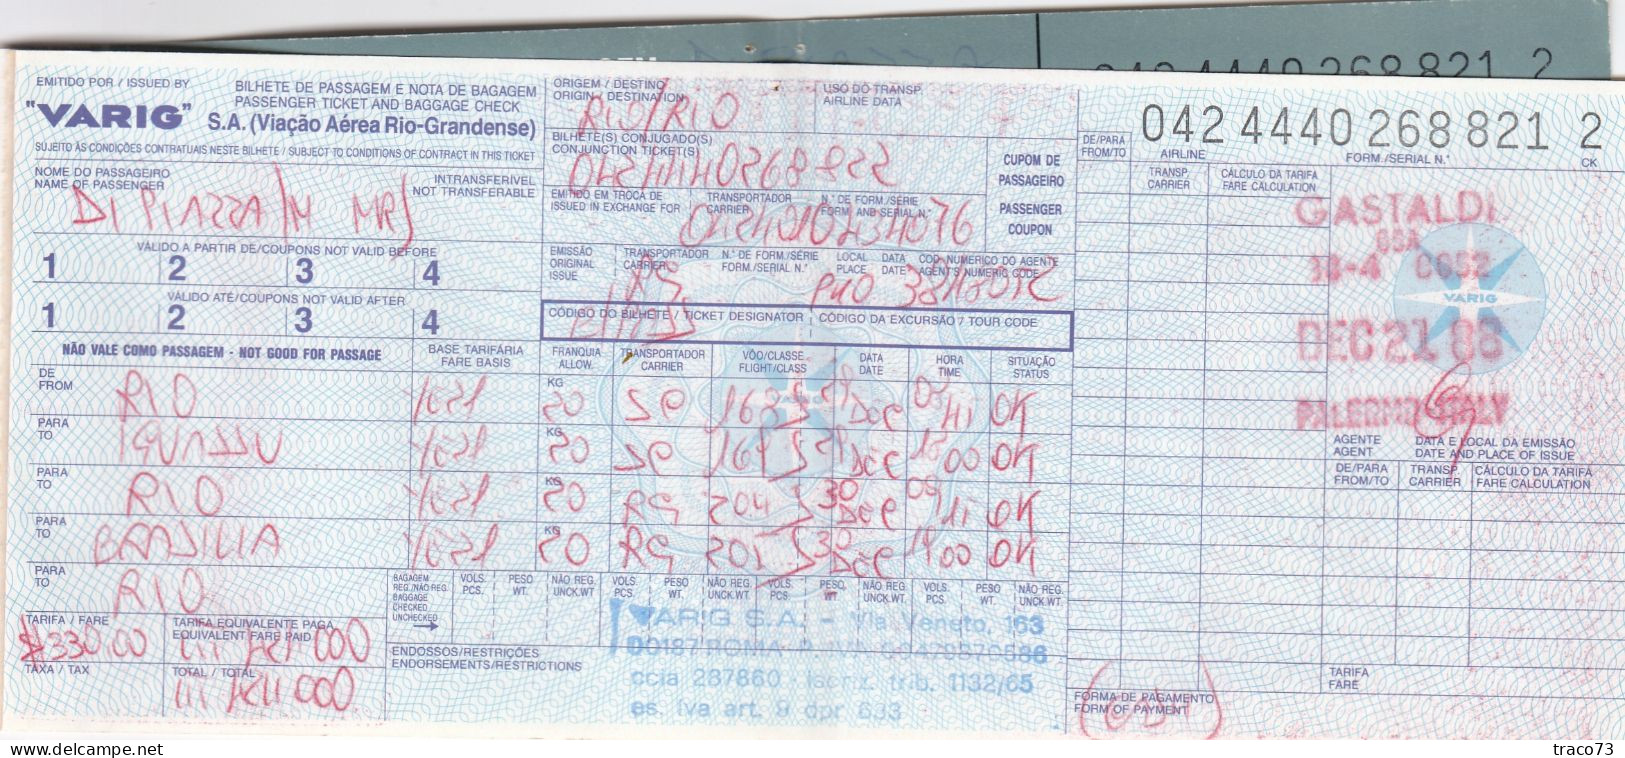 042 4440 268 821 2
EMITIDO POR / ISSUED BY
"VARIG"
BILHETE DE PASSAGEM E NOTA DE BAGAGEM
PASSENGER TICKET AND BAGGAGE CHECK
S.A. (Viação Aérea Rio-Grandense)
SUJEITO ÀS CONDIÇÕES CONTRATUAIS NESTE BILHETE / SUBJECT TO CONDITIONS OF CONTRACT IN THIS TICKET
ORIGEM / DESTINO
ORIGIN / DESTINATION
RIO/RIO
USO DO TRANSP.
AIRLINE DATA
BILHETE(S) CONJUGADO(S)
CONJUNCTION TICKET(S)
0424440268822
CUPOM DE
PASSAGEIRO
PASSENGER
COUPON
DE/PARA
FROM/TO
042 4440 268 821 2
AIRLINE FORM./SERIAL N.° CK
NOME DO PASSAGEIRO
NAME OF PASSENGER
INTRANSFERÍVEL
NOT TRANSFERABLE
DI PIAZZA/M MRS
EMITIDO EM TROCA DE
ISSUED IN EXCHANGE FOR
TRANSPORTADOR
CARRIER
N.° DE FORM./SÉRIE
FORM AND SERIAL N.°
TRANSP.
CARRIER
CÁLCULO DA TARIFA
FARE CALCULATION
GASTALDI
GSA
DEC 21 88
PALERMO ITALY
VARIG
VÁLIDO A PARTIR DE/COUPONS NOT VALID BEFORE
1 2 3 4
VÁLIDO ATÉ/COUPONS NOT VALID AFTER
1 2 3 4
EMISSÃO
ORIGINAL
ISSUE
TRANSPORTADOR
CARRIER
N.° DE FORM./SÉRIE
FORM./SERIAL N.°
LOCAL
PLACE
DATA
DATE
COD. NUMERICO DO AGENTE
AGENT'S NUMERIG CODE
CÓDIGO DO BILHETE / TICKET DESIGNATOR
CÓDIGO DA EXCURSÃO / TOUR CODE
NÃO VALE COMO PASSAGEM - NOT GOOD FOR PASSAGE
BASE TARIFÁRIA
FARE BASIS
FRANQUIA
ALLOW.
TRANSPORTADOR
CARRIER
VÔO/CLASSE
FLIGHT/CLASS
DATA
DATE
HORA
TIME
SITUAÇÃO
STATUS
DE
FROM
RIO YE21 KG 20 SP 168 S 29 DEC OK
PARA
TO
IGUASSU YE21 KG 20 SP 169 S 29 DEC OK
PARA
TO
RIO YE21 KG 20 RG 204 S 30 DEC OK
PARA
TO
BRASILIA YE21 KG 20 RG 205 S 30 DEC 1900 OK
PARA
TO
RIO
AGENTE
AGENT
DATA E LOCAL DA EMISSÃO
DATE AND PLACE OF ISSUE
DE/PARA
FROM/TO
TRANSP.
CARRIER
CÁLCULO DA TARIFA
FARE CALCULATION
BAGAGEM
REG./NÃO REG.
BAGGAGE
CHECKED
UNCHECKED
VOLS. PCS. PESO WT. NÃO REG. UNCK.WT. VOLS. PCS. PESO WT. NÃO REG. UNCK.WT. VOLS. PCS. PESO WT. NÃO REG. UNCK.WT. VOLS. PCS. PESO WT. NÃO REG. UNCK.WT.
TARIFA / FARE
$330.00
TARIFA EQUIVALENTE PAGA
EQUIVALENT FARE PAID
TAXA / TAX
TOTAL / TOTAL
ENDOSSOS/RESTRIÇÕES
ENDORSEMENTS/RESTRICTIONS
VARIG S.A. - Veneto, 163
00187 ROMA
ccia 287860 - Iscriz. trib. 1132/65
es. iva art. 9 dpr 633
TARIFA
FARE
FORMA DE PAGAMENTO
FORM OF PAYMENT
https://www.delcampe.net
traco73